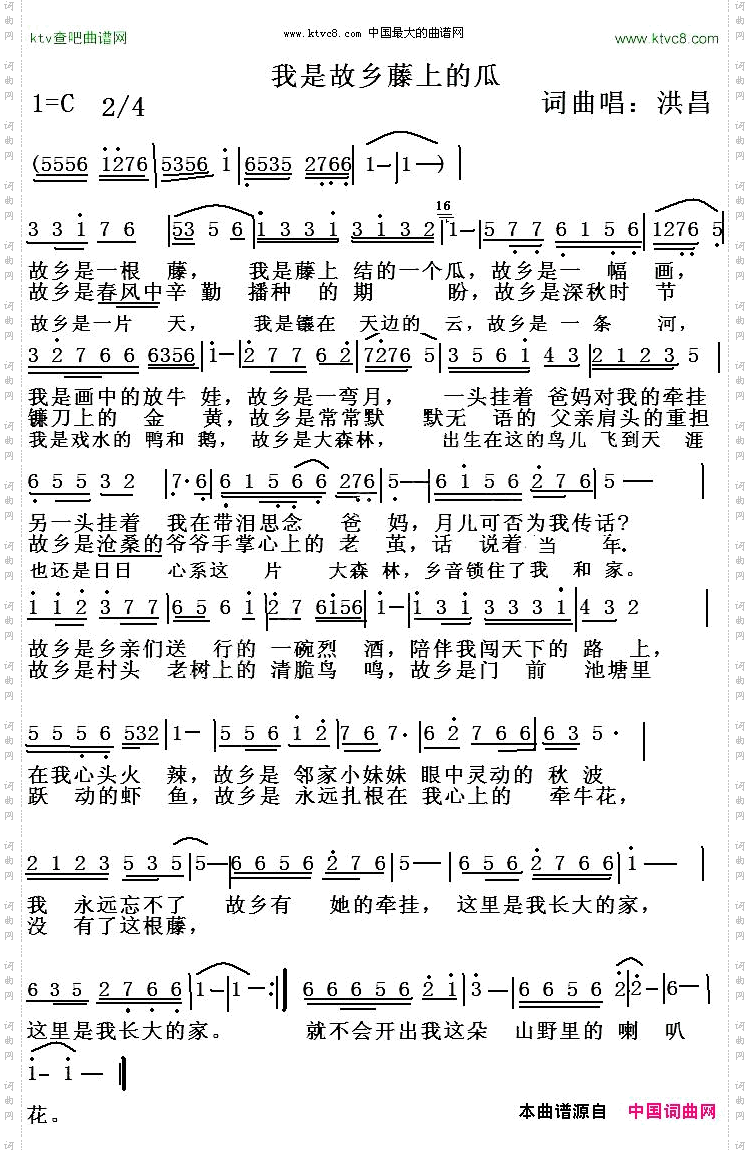 ktv查吧曲谱网 www.ktvc8.com 中国最大的曲谱网 www.ktvc8.com
我是故乡藤上的瓜
1=C 2/4 词曲唱：洪昌
(5556 1276 5356 1 6535 2766 1- 1-)
3 3 1 7 6 53 5 6 1 3 3 1 3 1 3 2 16 1- 5 7 7 6 1 5 6 1276 5
故乡是一根 藤， 我是藤上 结的一个瓜，故乡是一 幅 画，
故乡是春风中辛 勤 播种 的 期 盼，故乡是深秋时 节
故乡是一片 天， 我是镶在 天边的 云，故乡是 一 条 河，
3 2 7 6 6 6356 1- 2 7 7 6 2 7276 5 3 5 6 1 4 3 2 1 2 3
我是画中的放牛 娃，故乡是一弯月， 一头挂着 爸妈对我的牵挂
镰刀上的 金 黄，故乡是常常默 默无 语的 父亲肩头的重担
我是戏水的 鸭和 鹅， 故乡是大森林， 出生在这的鸟儿 飞到天 涯
6 5 5 3 2 7· 6 6 1 5 6 6 276 5- 6 1 5 6 2 7 6 5-
另一头挂着 我在带泪思念 爸 妈，月儿可否为我传话?
故乡是沧桑的爷爷手掌心上的 老 茧，话 说着 当 年.
也还是日日 心系这 片 大森 林，乡音锁住了我 和 家。
1 1 2 3 7 7 6 5 6 1 2 7 6156 1- 1 3 1 3 3 3 1 4 3 2
故乡是乡亲们送 行的 一碗烈 酒，陪伴我闯天下的 路 上，
故乡是村头 老树上的 清脆鸟 鸣，故乡是门 前 池塘里
5 5 5 6 532 1- 5 5 6 1 2 7 6 7· 6 2 7 6 6 6 3 5·
在我心头火 辣，故乡是 邻家小妹妹 眼中灵动的 秋 波
跃 动的虾 鱼，故乡是 永远扎根在 我心上的 牵牛花，
2 1 2 3 5 3 5 5- 6 6 5 6 2 7 6 5- 6 5 6 2 7 6 6 1-
我 永远忘不了 故乡有 她的牵挂，这里是我长大的家，
没 有了这根藤，
6 3 5 2 7 6 6 1- 1-:‖ 6 6 6 5 6 2 1 3- 6 6 5 6 2 2- 6-
这里是我长大的家。 就不会开出我这朵 山野里的 喇 叭
1- 1-
花。
本曲谱源自 中国词曲网